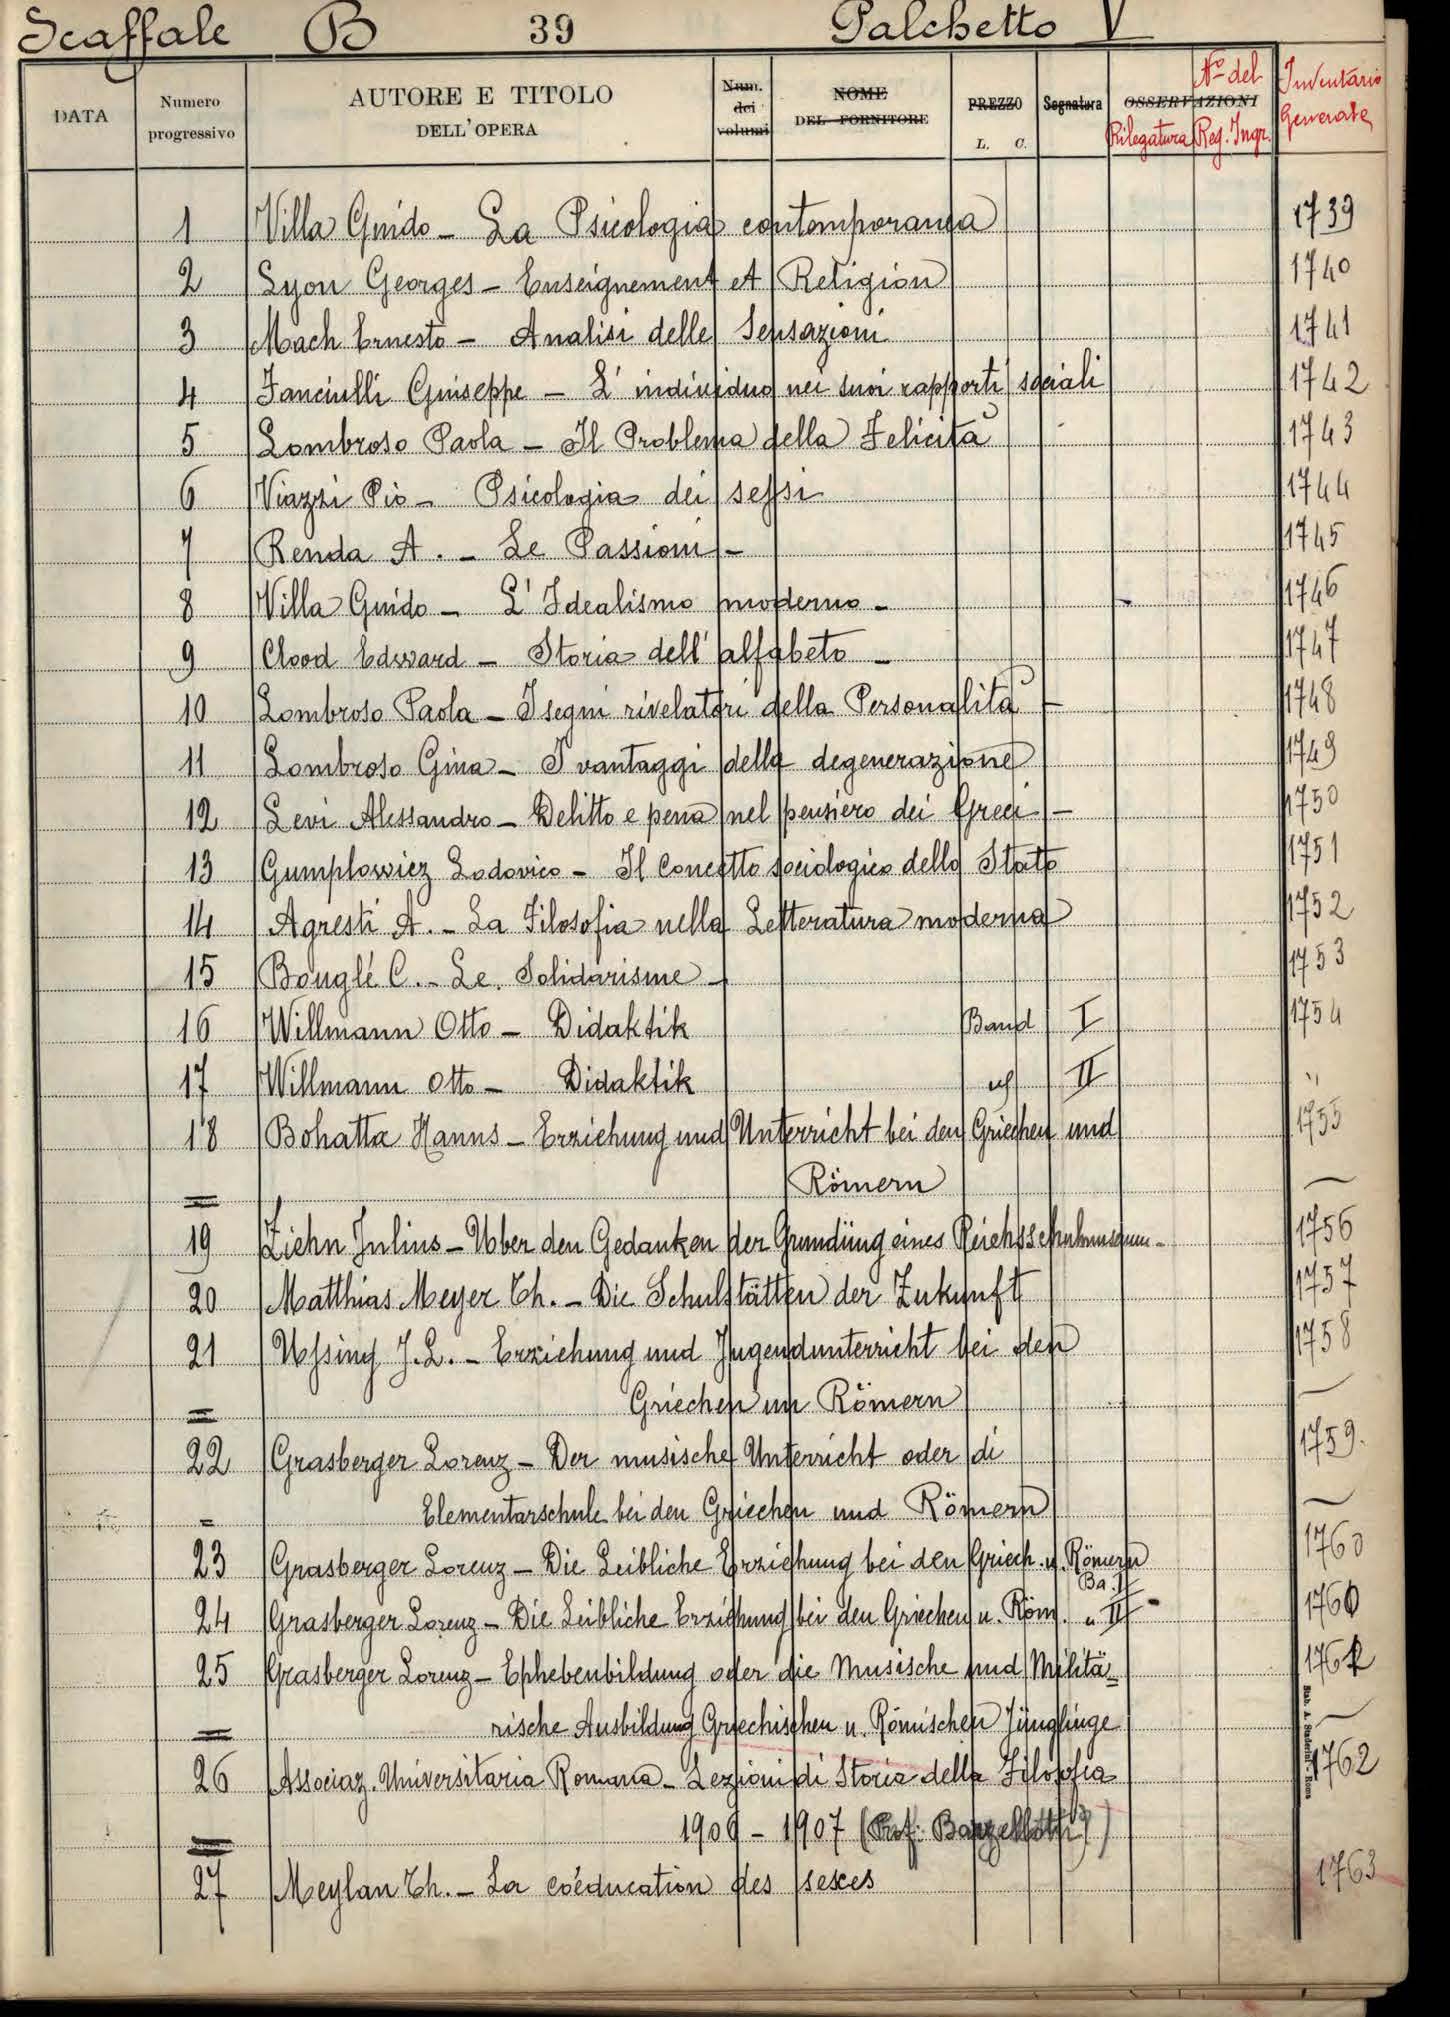 Scaffale B 39 Palchetto V
DATA Numero progressivo AUTORE E TITOLO DELL'OPERA Num. dei volumi NOME DEL FORNITORE PREZZO L. C. Segnatura OSSERVAZIONI Rilegatura No del Reg. Ingr. Inventario Generale
1 Villa Guido - La Psicologia contemporanea 1739
2 Lyon Georges - Enseignement et Religion 1740
3 Mach Ernesto - Analisi delle Sensazioni 1741
4 Fanciulli Giuseppe - L' individuo nei suoi rapporti sociali 1742
5 Lombroso Paola - Il Problema della Felicità 1743
6 Viazzi Pio - Psicologia dei sessi 1744
7 Renda A. - Le Passioni - 1745
8 Villa Guido - L' Idealismo moderno - 1746
9 Clood Edward - Storia dell' alfabeto - 1747
10 Lombroso Paola - I segni rivelatori della Personalità - 1748
11 Lombroso Gina - I vantaggi della degenerazione 1749
12 Levi Alessandro - Delitto e pena nel pensiero dei Greci - 1750
13 Gumplowicz Lodovico - Il concetto sociologico dello Stato 1751
14 Agresti A. - La Filosofia nella Letteratura moderna 1752
15 Bouglé C. - Le Solidarisme - 1753
16 Willmann Otto - Didaktik Band I 1754
17 Willmann Otto - Didaktik " II "
18 Bohatta Hanns - Erziehung und Unterricht bei den Griechen und 1755
= Römern
19 Ziehn Julius - Uber den Gedanken der Grundüng eines Reichsschulmuseum - 1756
20 Matthias Meyer Th. - Die Schulstätten der Zukunft 1757
21 Ussing J. L. - Erziehung und Jugendunterricht bei den 1758
= Griechen un Römern
22 Grasberger Lorenz - Der musische Unterricht oder di 1759.
= Elementarschule bei den Griechen und Römern
23 Grasberger Lorenz - Die Leibliche Erziehung bei den Griech. u. Römern Ba. I 1760
24 Grasberger Lorenz - Die Leibliche Erziehung bei den Griechen u. Röm. " II 1760
25 Grasberger Lorenz - Ephebenbildung oder die Musische und Militä= 1761
= rische Ausbildung Griechischen u. Römischen Jünglinge
26 Associaz. Universitaria Romana - Lezioni di Storia della Filosofia 1762
= 1906 - 1907 (Prof. Barzellotti)
27 Meylan Th. - La coéducation des sexes 1763
Stab. A. Staderini - Roma